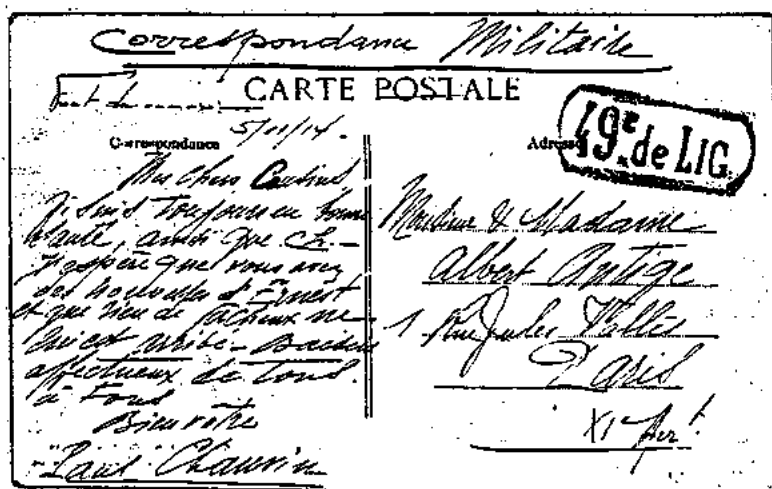 Correspondance Militaire
CARTE POSTALE
5/11/14.
Correspondance
Adresse
49e de LIG.
Mes chers Cousins
Je suis toujours en bonne
santé, ainsi que Ch.-
J'espère que vous avez
des nouvelles d'Ernest
et que rien de fâcheux ne
lui est arrivé - Baisers
affectueux de tous
à Tous
Bien vôtre
"Paul" Chauvin
Monsieur & Madame
Albert Antige
1 Rue Jules Vallès
Paris
XIe Arrt